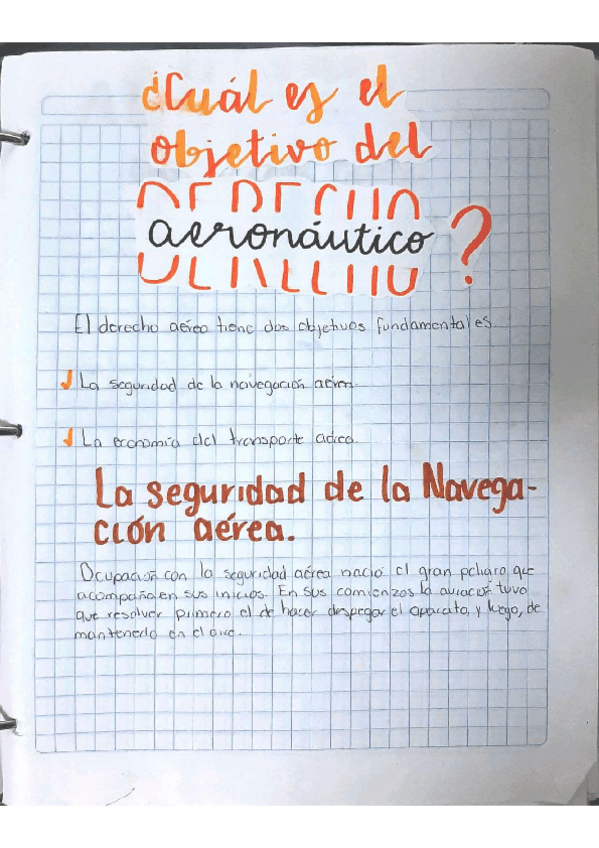 ¿Cuál es el
objetivo del
DERECHO
aeronáutico ?
El derecho aéreo tiene dos objetivos fundamentales.
La seguridad de la navegación aérea.
La economía del transporte aéreo
La seguridad de la Navega-
ción aérea.
Ocupación con la seguridad aérea nació el gran peligro que
acompaña en sus inicios. En sus comienzos la aviación tuvo
que resolver primero el de hacer despegar el aparato, y luego, de
mantenerlo en el aire.